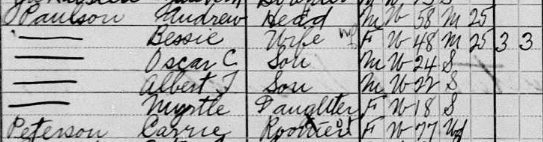 Paulson Andrew Head M W 58 M 25
— Bessie Wife F W 48 M 25 3 3
— Oscar C Son M W 24 S
— Albert T Son M W 22 S
— Myrtle Daughter F W 18 S
Peterson Carrie Roomer F W 77 Wd